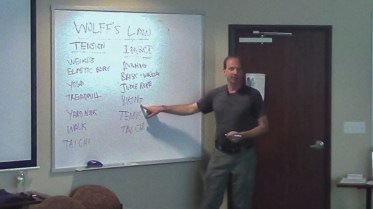 WOLFF'S LAW
TENSION IMPACT
WEIGHTS RUNNING
ELASTIC BAND BRISK-WALKING
YOGA JUMP ROPE
TREADMILL HIKING
YARD WORK TENNIS
WALK TAI CHI
TAI CHI